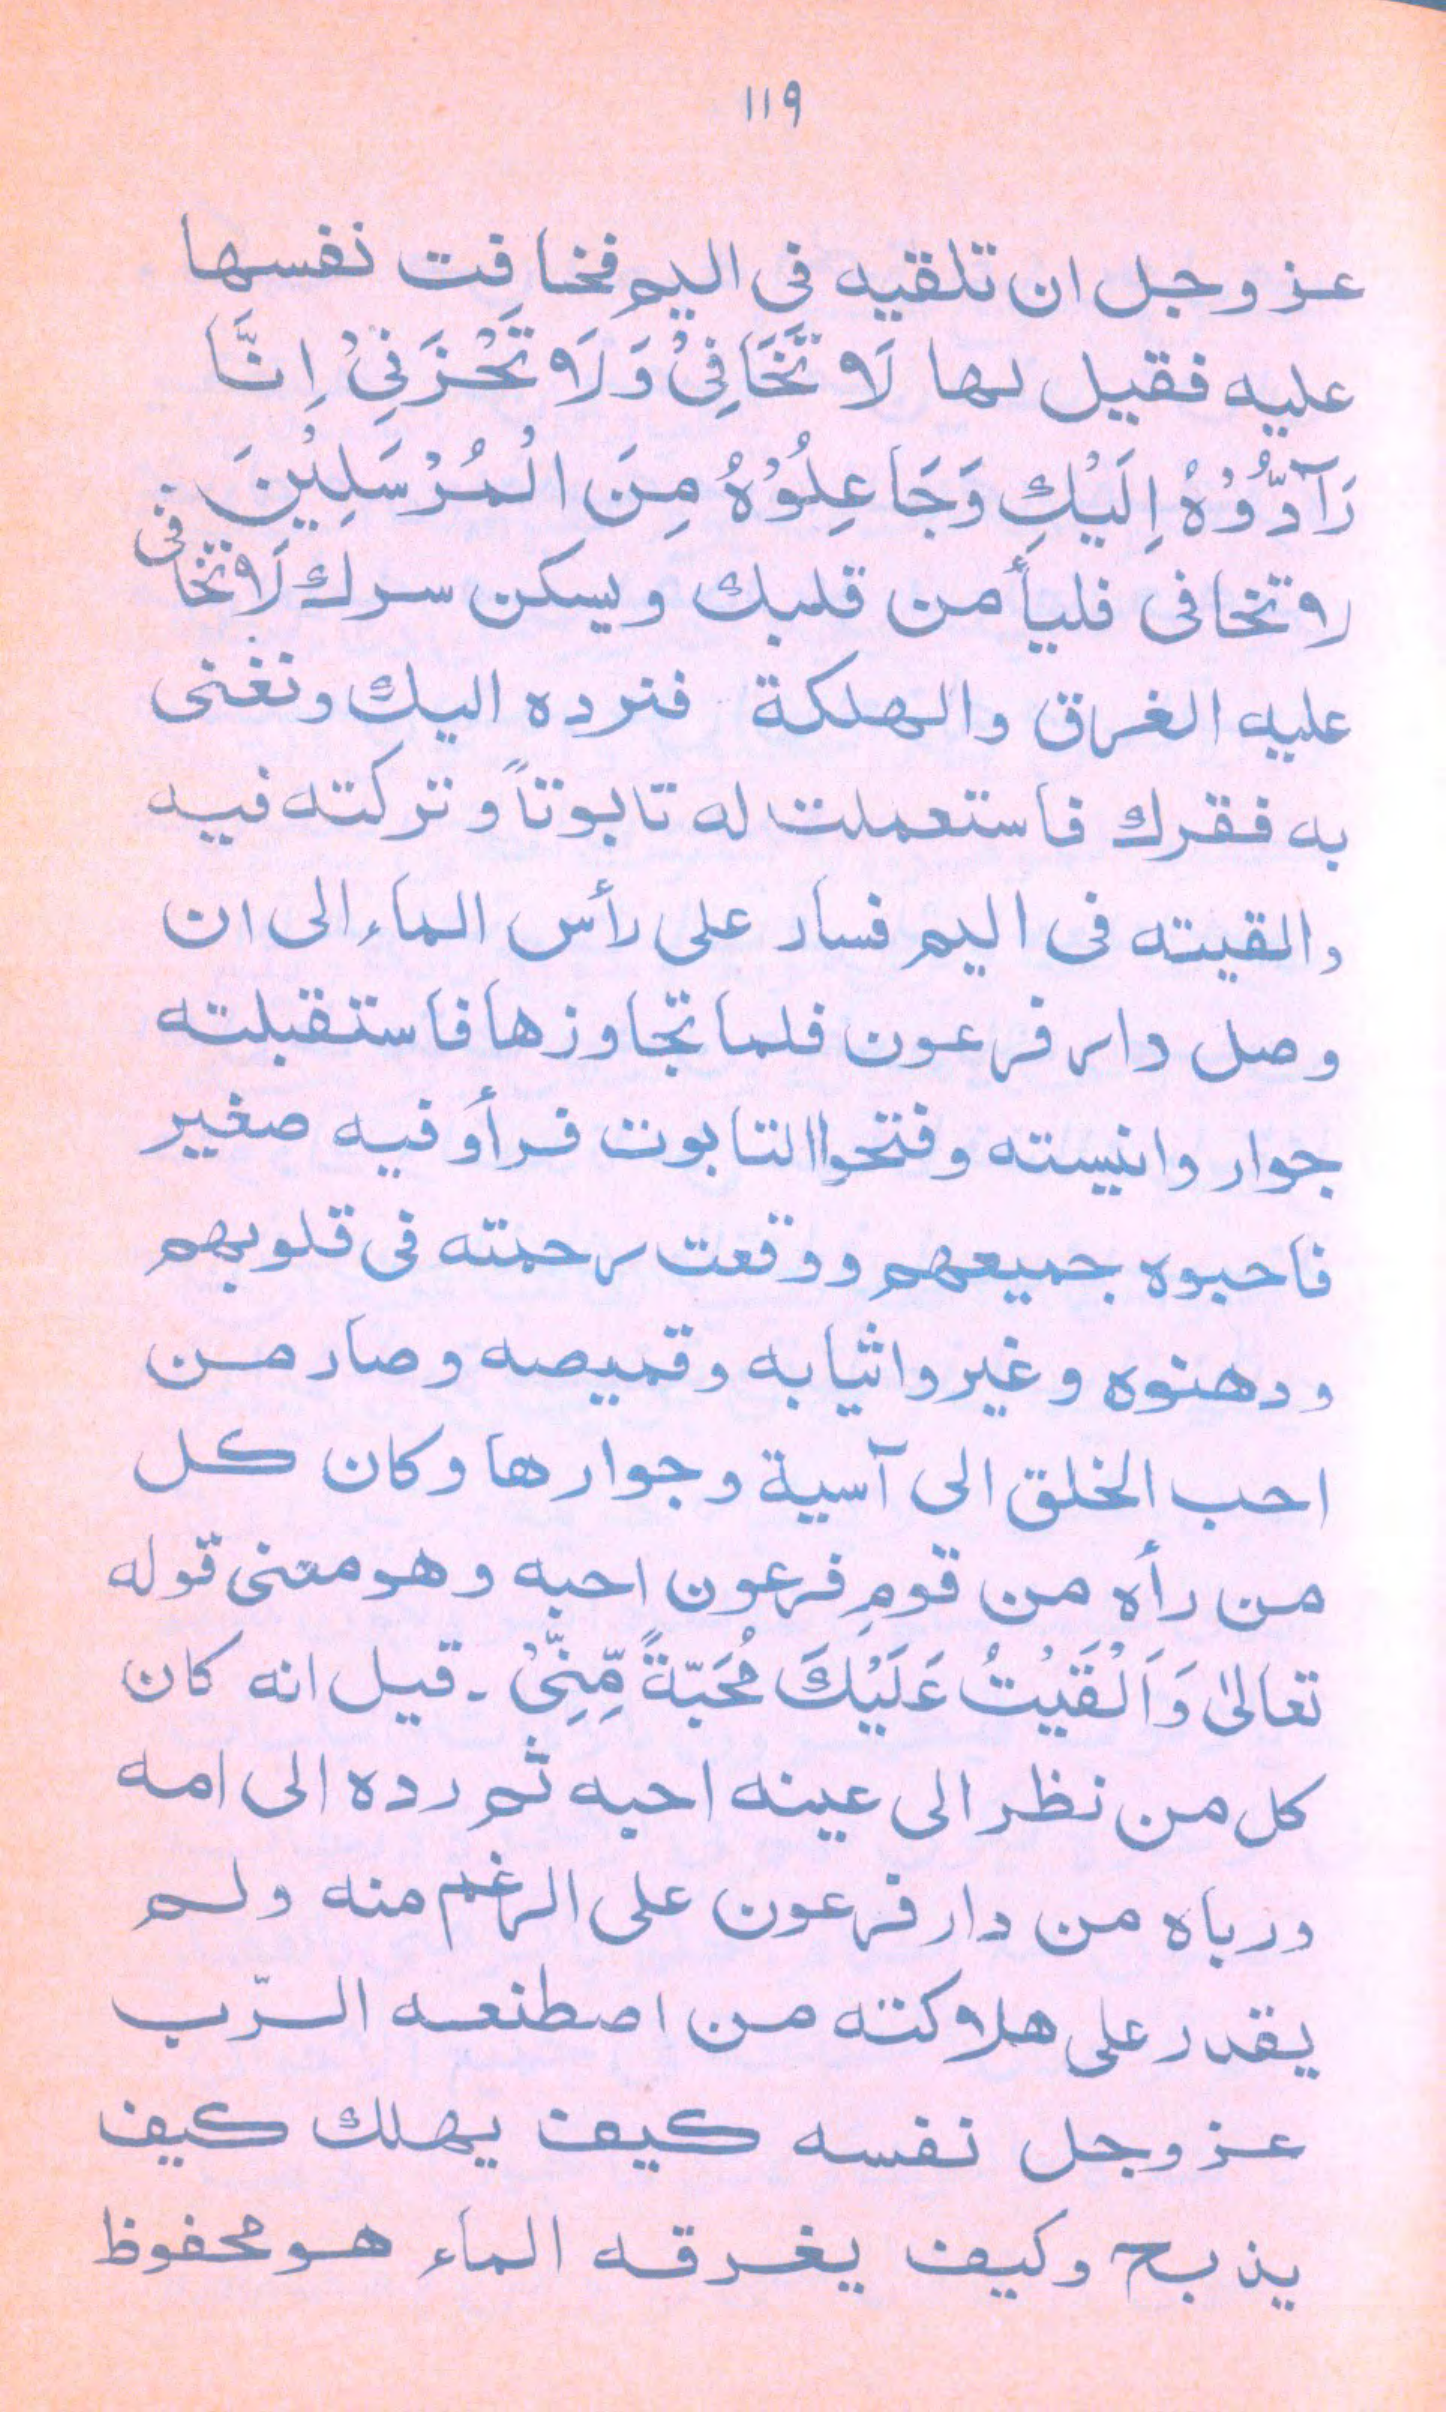 ١١٩
عز وجل ان تلقيه فى اليم فخافت نفسها
عليه فقيل لها لَا تَخَافِىْ وَلَا تَحْزَنِىْ اِنَّا
رَآدُّوْهُ اِلَيْكِ وَجَاعِلُوْهُ مِنَ الْمُرْسَلِيْنَ.
لا تخافى فليأمن قلبك ويسكن سرك لَا تخافى
عليه الغرق والهلكة فنرده اليك ونغنى
به فقرك فاستعملت له تابوتاً وتركته فيه
والقيته فى اليم فسار على رأس الماء الى ان
وصل دار فرعون فلما تجاوزها فاستقبلته
جوار وانيسته وفتحوا التابوت فرأو فيه صغير
فاحبوه جميعهم ووقعت رحمته فى قلوبهم
ودهنوه وغيروا ثيابه وقميصه وصار من
احب الخلق الى آسية وجوارها وكان كل
من رأه من قومِ فرعون احبه وهو معنى قوله
تعالىٰ وَاَلْقَيْتُ عَلَيْكَ مُحَبَّةً مِّنِّىْ ـ قيل انه كان
كل من نظر الى عينه احبه ثم رده الى امه
ورباه من دار فرعون على الرغم منه ولم
يقدر على هلاكته من اصطنعه الرّب
عز وجل نفسه كيف يهلك كيف
يذبح وكيف يغرقه الماء هو محفوظ